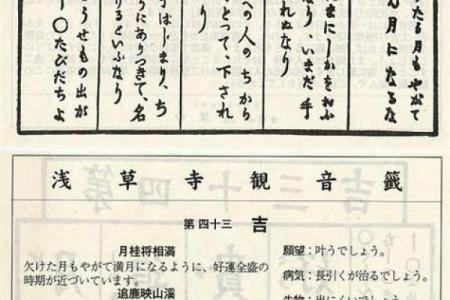 たる月もやがて
ん月になるな
たまにしかをおふ
なり いまだ手
れぬなり
への人のちから
とつて、下され
り
子はじまり、ち
うにありつきて、名
りるといふなり
うせもの出が
ー〇たびだちよ
浅草寺観音籤
第四十三 吉
月桂将相満
欠けた月もやがて満月になるように、好運全盛の
時期が近づいています。
追鹿映山渓
願望：叶うでしょう。
病気：長引くが治るでしょう。
失物：出にくいでしょう。